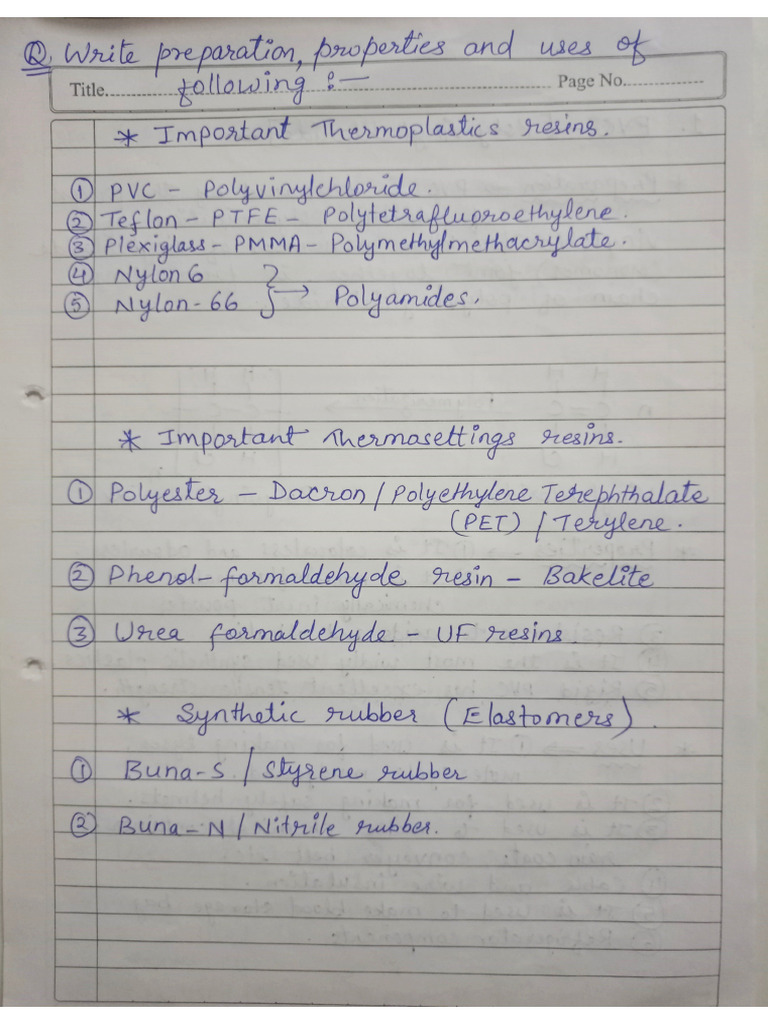 Q. Write preparation, properties and uses of
Title.................. following :— .................. Page No..................
* Important Thermoplastics resins.
① PVC - Polyvinylchloride.
② Teflon - PTFE - Polytetrafluoroethylene.
③ Plexiglass - PMMA - Polymethylmethacrylate.
④ Nylon 6
⑤ Nylon-66 } → Polyamides.
* Important Thermasettings resins.
① Polyester - Dacron / Polyethylene Terephthalate
(PET) / Terylene.
② Phenol-formaldehyde resin - Bakelite
③ Urea formaldehyde - UF resins
* Synthetic rubber (Elastomers).
① Buna-S / Styrene rubber
② Buna-N / Nitrile rubber.